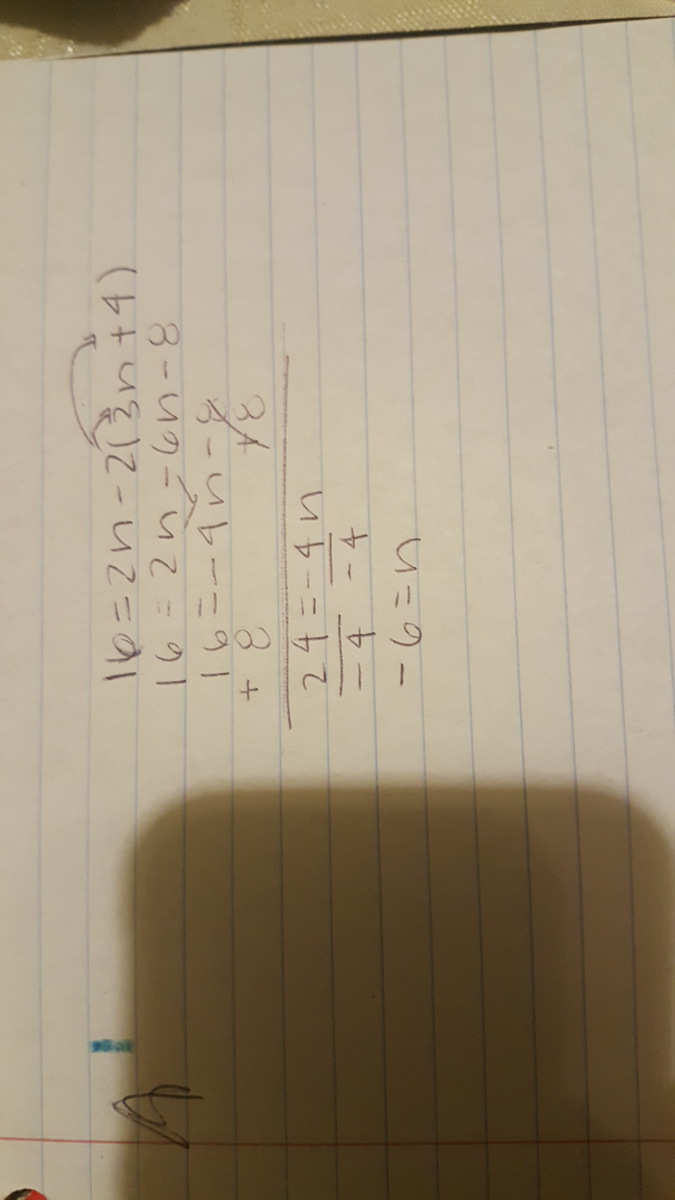 16 = 2n - 2(3n + 4)
16 = 2n - 6n - 8
16 = -4n - 8
+8 +8
24 = -4n
-4 -4
-6 = n